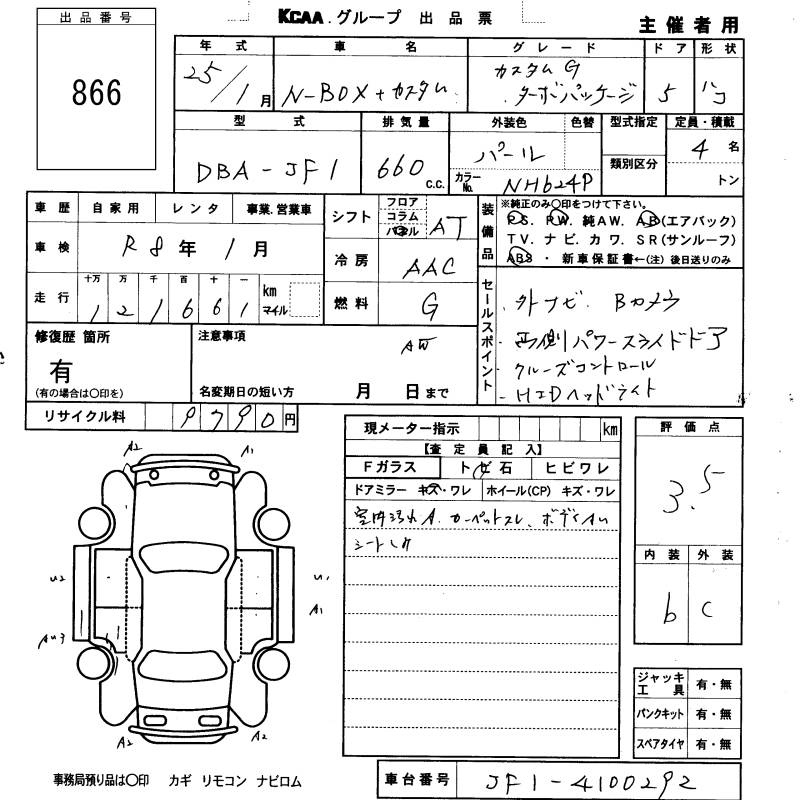 出品番号
866
KCAA.グループ 出品票
主催者用
年式 車名 グレード ドア 形状
25/1月 N-BOX+カスタム カスタムG ターボパッケージ 5 ハコ
型式 排気量 外装色 色替 型式指定 定員・積載
DBA-JF1 660 c.c. パール 類別区分 4名
カラーNo. NH624P トン
車歴 自家用 レンタ 事業.営業車
シフト フロア コラム パネル AT
装備品 ※純正のみ〇印をつけて下さい。
PS. PW. 純AW. AB(エアバック)
TV. ナビ. カワ. SR(サンルーフ)
ABS ・ 新車保証書←(注) 後日送りのみ
車検 R8年1月
冷房 AAC
走行 十万 万 千 百 十 一
121661 km マイル
燃料 G
セールスポイント
・外ナビ. Bカメラ
・両側パワースライドドア
・クルーズコントロール
・HIDヘッドライト
修復歴 箇所
有
(有の場合は〇印を)
注意事項
AW
名変期日の短い方 月 日まで
リサイクル料 9790円
現メーター指示 km
【査定員記入】
Fガラス トビ石 ヒビワレ
ドアミラー キズ・ワレ ホイール(CP) キズ・ワレ
室内汚れA. カーペットスレ、ボディAU
シートレカ
評価点
3.5
内装 外装
b C
A2 A1
U2 U1
A1
AU3
A2 A2
ジャッキ工具 有・無
パンクキット 有・無
スペアタイヤ 有・無
事務局預り品は〇印 カギ リモコン ナビロム
車台番号 JF1-4100292